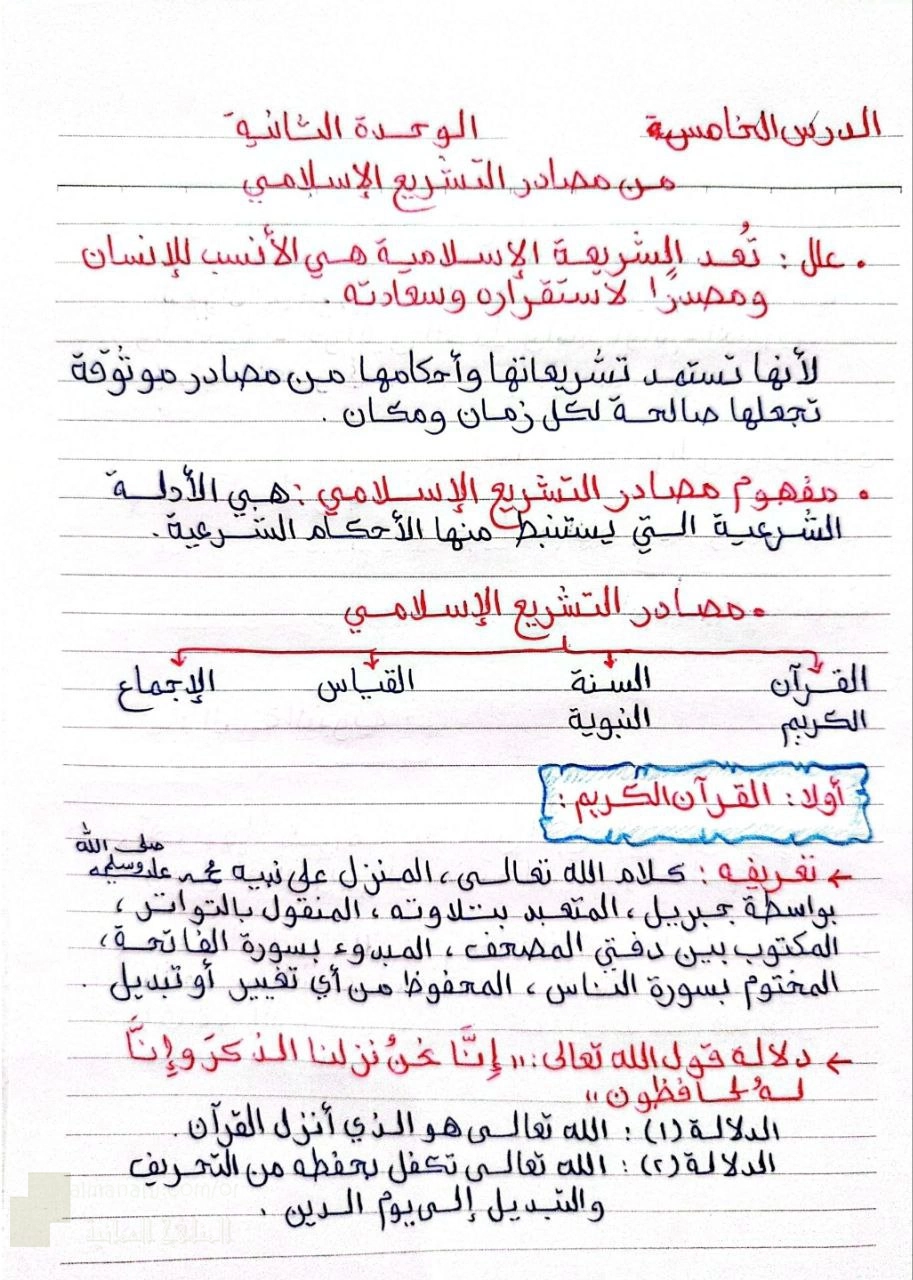 الدرس الخامسة الوحدة الثانية
من مصادر التشريع الإسلامي
. علل : تُعد الشريعة الإسلامية هي الأنسب للإنسان
ومصدرًا لاستقراره وسعادته .
لأنها تستمد تشريعاتها وأحكامها من مصادر موثوقة
تجعلها صالحة لكل زمان ومكان .
. مفهوم مصادر التشريع الإسلامي : هي الأدلة
الشرعية التي يستنبط منها الأحكام الشرعية .
. مصادر التشريع الإسلامي
القرآن السنة القياس الإجماع
الكريم النبوية
أولا : القرآن الكريم :
← تعريفه : كلام الله تعالى ، المنزل على نبيه محمد صلى الله عليه وسلم
بواسطة جبريل ، المتعبد بتلاوته ، المنقول بالتواتر ،
المكتوب بين دفتي المصحف ، المبدوء بسورة الفاتحة ،
المختوم بسورة الناس ، المحفوظ من أي تغيير أو تبديل .
← دلالة قول الله تعالى : " إِنَّا نَحنُ نزلنا الذكرَ وإِنَّا
لهُ لحافظون "
الدلالة (١) : الله تعالى هو الذي أنزل القرآن .
الدلالة (٢) : الله تعالى تكفل بحفظه من التحريف
والتبديل إلى يوم الدين .
almanahj.com/om
المناهج العمانية